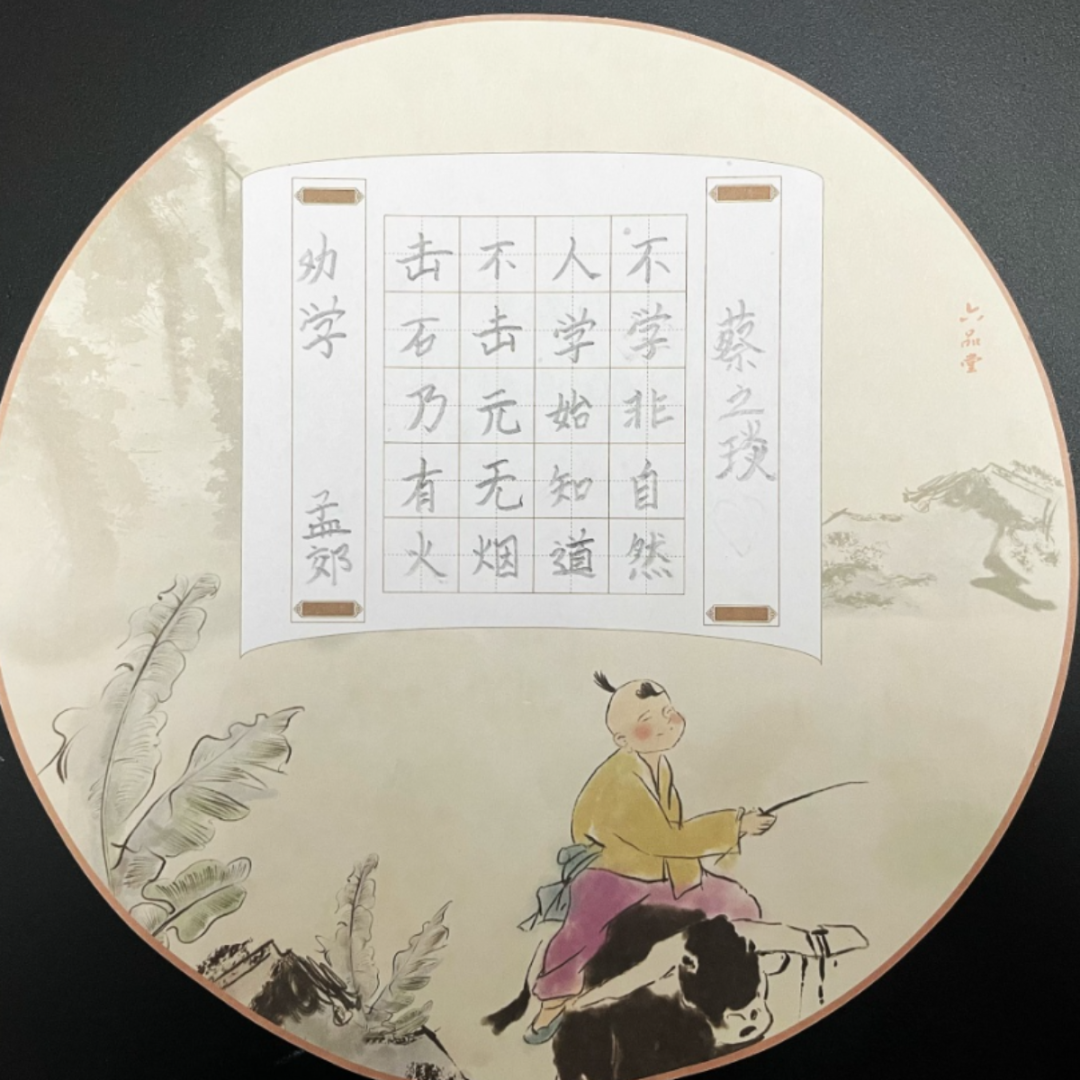 劝学
孟郊
击石乃有火
不击元无烟
人学始知道
不学非自然
蔡之琰
六品堂